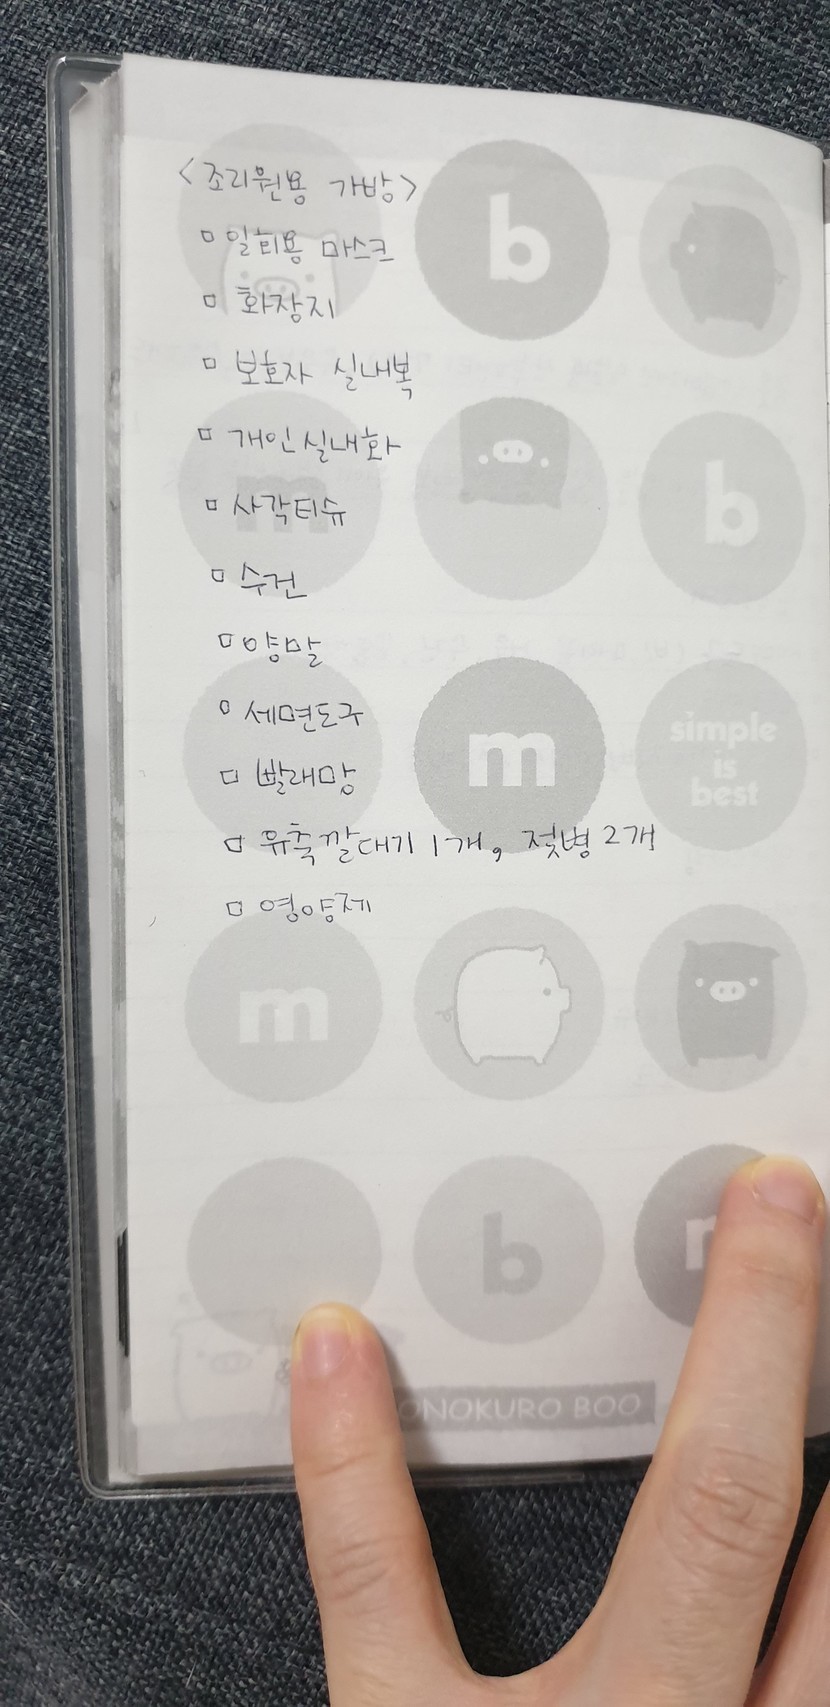 <조리원용 가방>
□ 일회용 마스크
□ 화장지
□ 보호자 실내복
□ 개인실내화
□ 사각티슈
□ 수건
□ 양말
□ 세면도구
□ 빨래망
□ 유축깔대기 1개, 젖병 2개
□ 영양제
b
m
b
m
simple
is
best
m
b
ONOKURO BOO